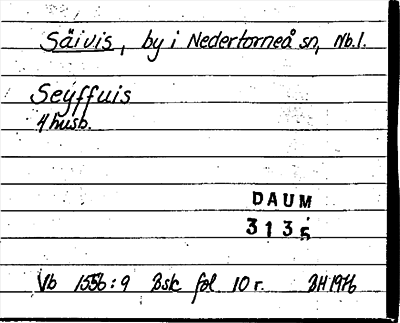 Säivis, by i Nedertorneå sn, Nb.l.
Seyffuis
4 husb.
DAUM
3135
Vb 1556:9 Bsk fol 10 r. BH 1976